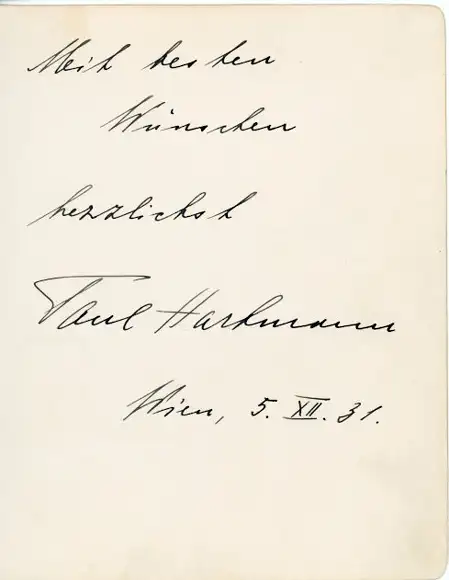 Mit besten
Wünschen
herzlichst
Paul Hartmann
Wien, 5. XII. 31.